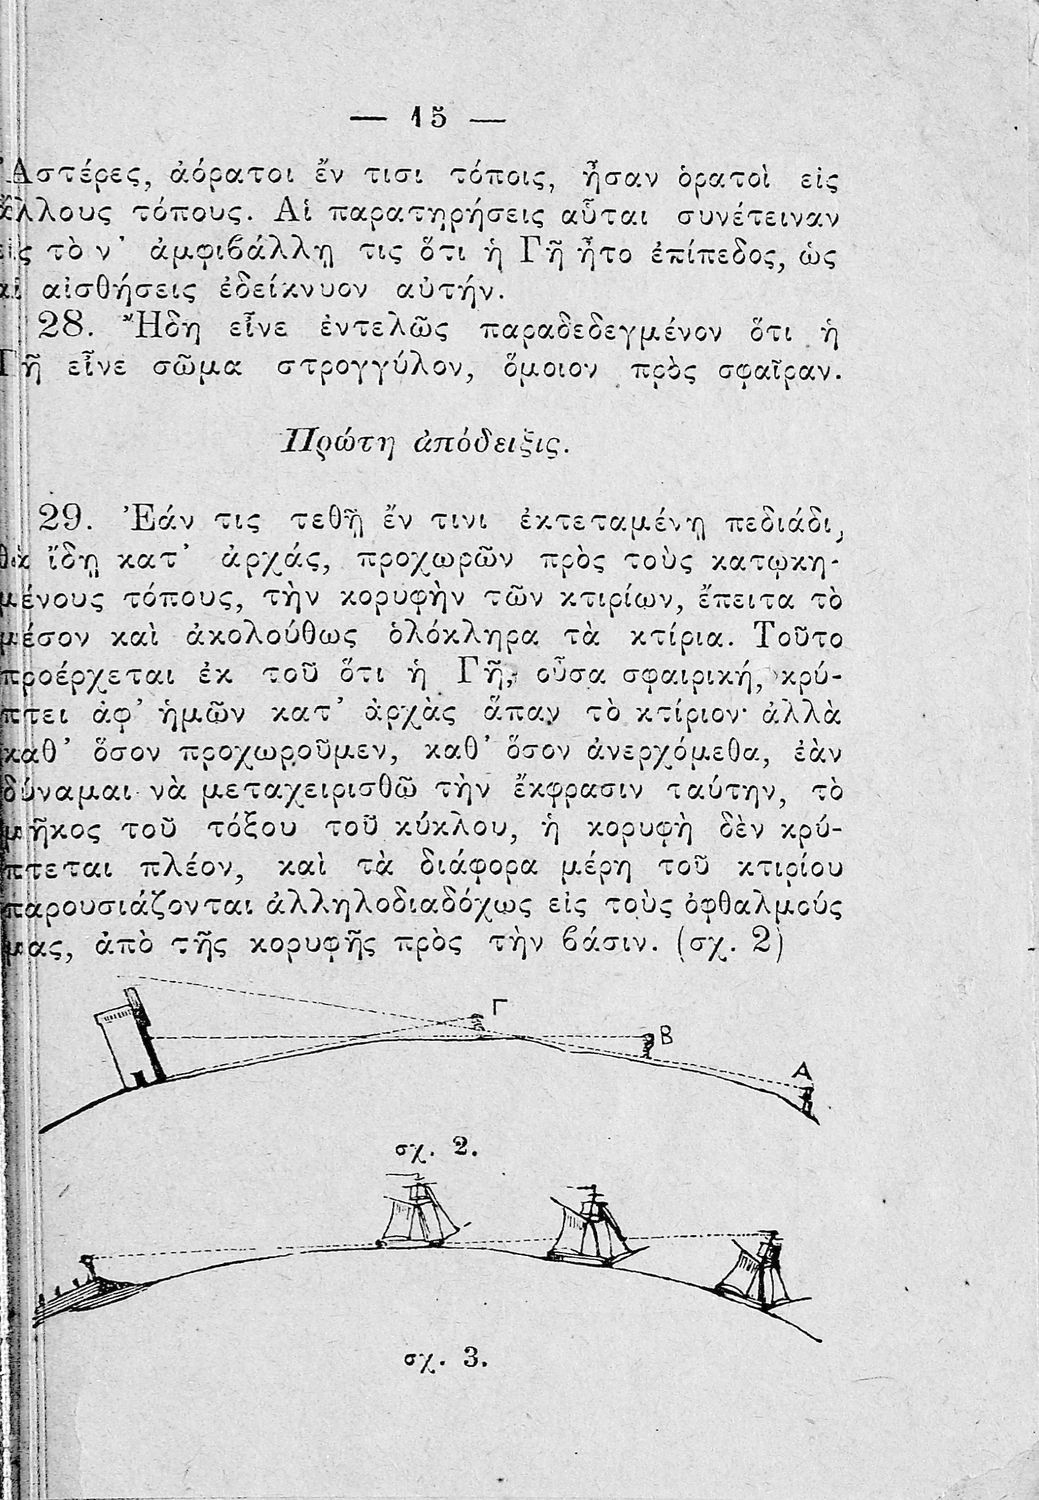 — 15 —
Ἀστέρες, ἀόρατοι ἔν τισι τόποις, ἦσαν ὁρατοὶ εἰς
ἄλλους τόπους. Αἱ παρατηρήσεις αὗται συνέτειναν
εἰς τὸ ν᾽ ἀμφιβάλλῃ τις ὅτι ἡ Γῆ ἦτο ἐπίπεδος, ὡς
αἱ αἰσθήσεις ἐδείκνυον αὐτήν.
28. Ἤδη εἶνε ἐντελῶς παραδεδεγμένον ὅτι ἡ
Γῆ εἶνε σῶμα στρογγύλον, ὅμοιον πρὸς σφαῖραν.
Πρώτη ἀπόδειξις.
29. Ἐάν τις τεθῇ ἔν τινι ἐκτεταμένῃ πεδιάδι,
θὰ ἴδῃ κατ᾽ ἀρχάς, προχωρῶν πρὸς τοὺς κατῳκη-
μένους τόπους, τὴν κορυφὴν τῶν κτιρίων, ἔπειτα τὸ
μέσον καὶ ἀκολούθως ὁλόκληρα τὰ κτίρια. Τοῦτο
προέρχεται ἐκ τοῦ ὅτι ἡ Γῆ, οὖσα σφαιρική, κρύ-
πτει ἀφ᾽ ἡμῶν κατ᾽ ἀρχὰς ἅπαν τὸ κτίριον· ἀλλὰ
καθ᾽ ὅσον προχωροῦμεν, καθ᾽ ὅσον ἀνερχόμεθα, ἐὰν
δύναμαι νὰ μεταχειρισθῶ τὴν ἔκφρασιν ταύτην, τὸ
μῆκος τοῦ τόξου τοῦ κύκλου, ἡ κορυφὴ δὲν κρύ-
πτεται πλέον, καὶ τὰ διάφορα μέρη τοῦ κτιρίου
παρουσιάζονται ἀλληλοδιαδόχως εἰς τοὺς ὀφθαλμούς
μας, ἀπὸ τῆς κορυφῆς πρὸς τὴν βάσιν. (σχ. 2)
Γ
Β
Α
σχ. 2.
σχ. 3.